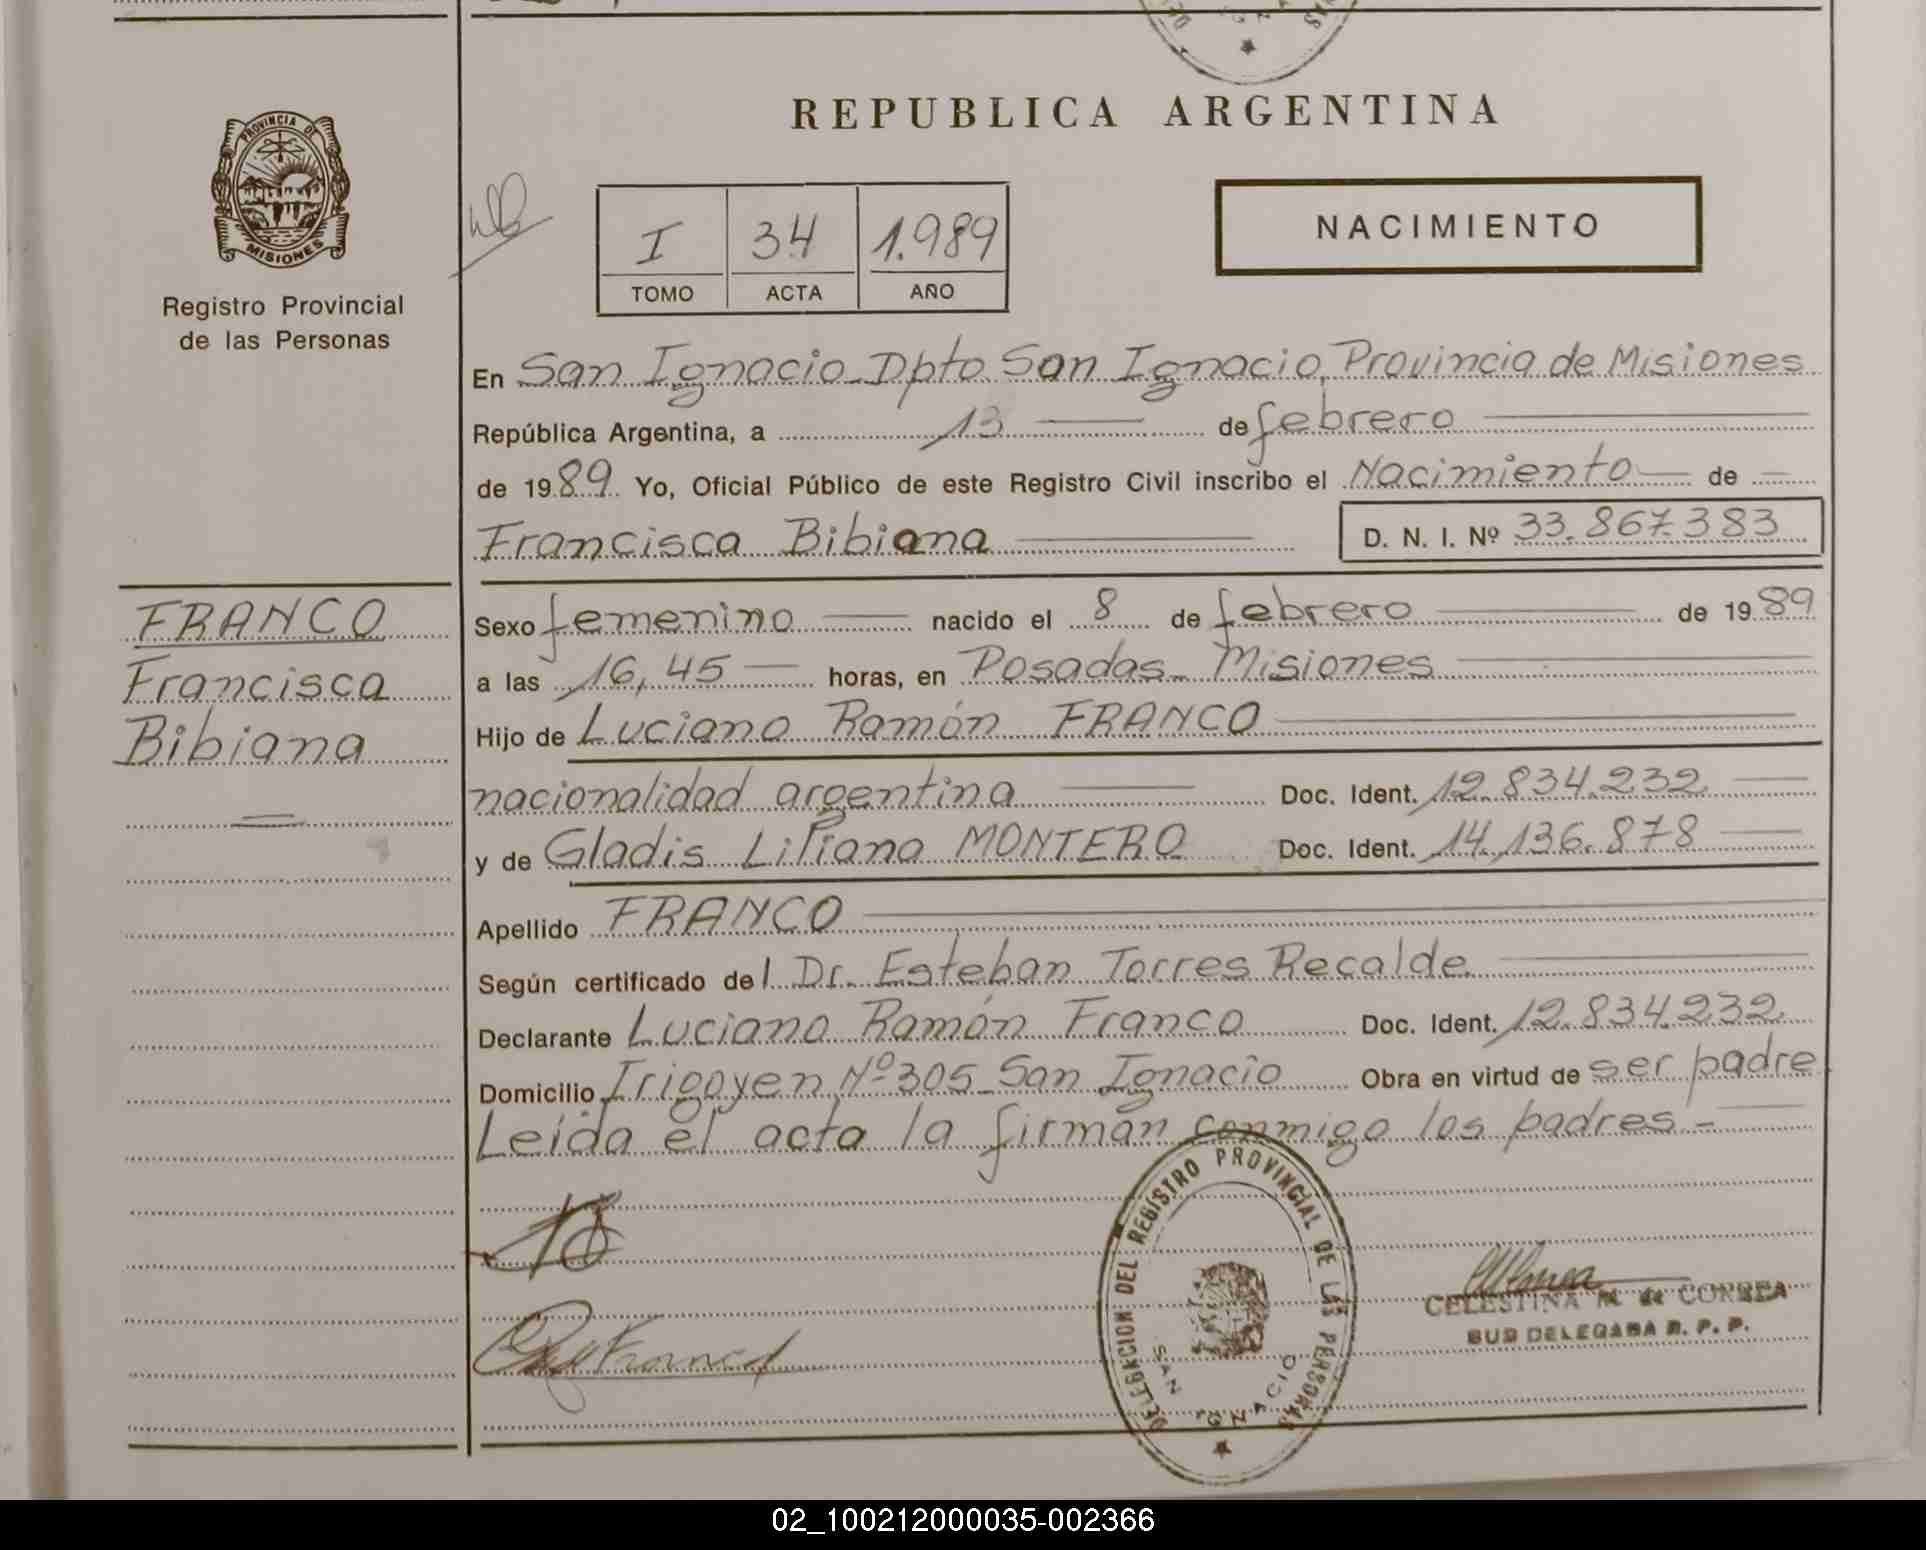 REPUBLICA ARGENTINA
PROVINCIA DE
MISIONES
Registro Provincial
de las Personas
I 34 1.989
TOMO ACTA AÑO
NACIMIENTO
En San Ignacio Dpto San Ignacio, Provincia de Misiones
República Argentina, a 13 de febrero
de 1989 Yo, Oficial Público de este Registro Civil inscribo el Nacimiento de
Francisca Bibiana D. N. I. Nº 33.867.383
FRANCO
Francisca
Bibiana
Sexo femenino nacido el 8 de febrero de 1989
a las 16,45 horas, en Posadas - Misiones
Hijo de Luciano Ramón FRANCO
nacionalidad argentina Doc. Ident. 12.834.232
y de Gladis Liliana MONTERO Doc. Ident. 14.136.878
Apellido FRANCO
Según certificado del Dr. Esteban Torres Recalde
Declarante Luciano Ramón Franco Doc. Ident. 12.834.232
Domicilio Irigoyen Nº 305 - San Ignacio Obra en virtud de ser padre
Leída el acta la firman conmigo los padres -
DELEGACION DEL REGISTRO PROVINCIAL DE LAS PERSONAS
SAN IGNACIO
Franco
CELESTINA M. de CORREA
SUB DELEGADA R. P. P.
02_100212000035-002366